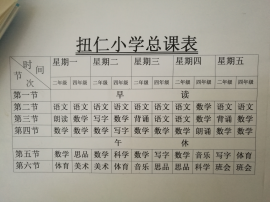 扭仁小学总课表
时间 星期一 星期二 星期三 星期四 星期五
节次 二年级 四年级 二年级 四年级 二年级 四年级 二年级 四年级 二年级 四年级
第一节 早 读
第二节 语文 语文 语文 语文 语文 语文 语文 数学 语文 语文
第三节 朗读 数学 写字 数学 背诵 语文 数学 语文 背诵 数学
第四节 数学 写字 数学 写字 数学 数学 朗诵 数学
午 休
第五节 数学 思品 数学 科学 数学 写字 数学 音乐 写字 体育
第六节 体育 美术 美术 体育 思品 音乐 思品 科学 班会 班会